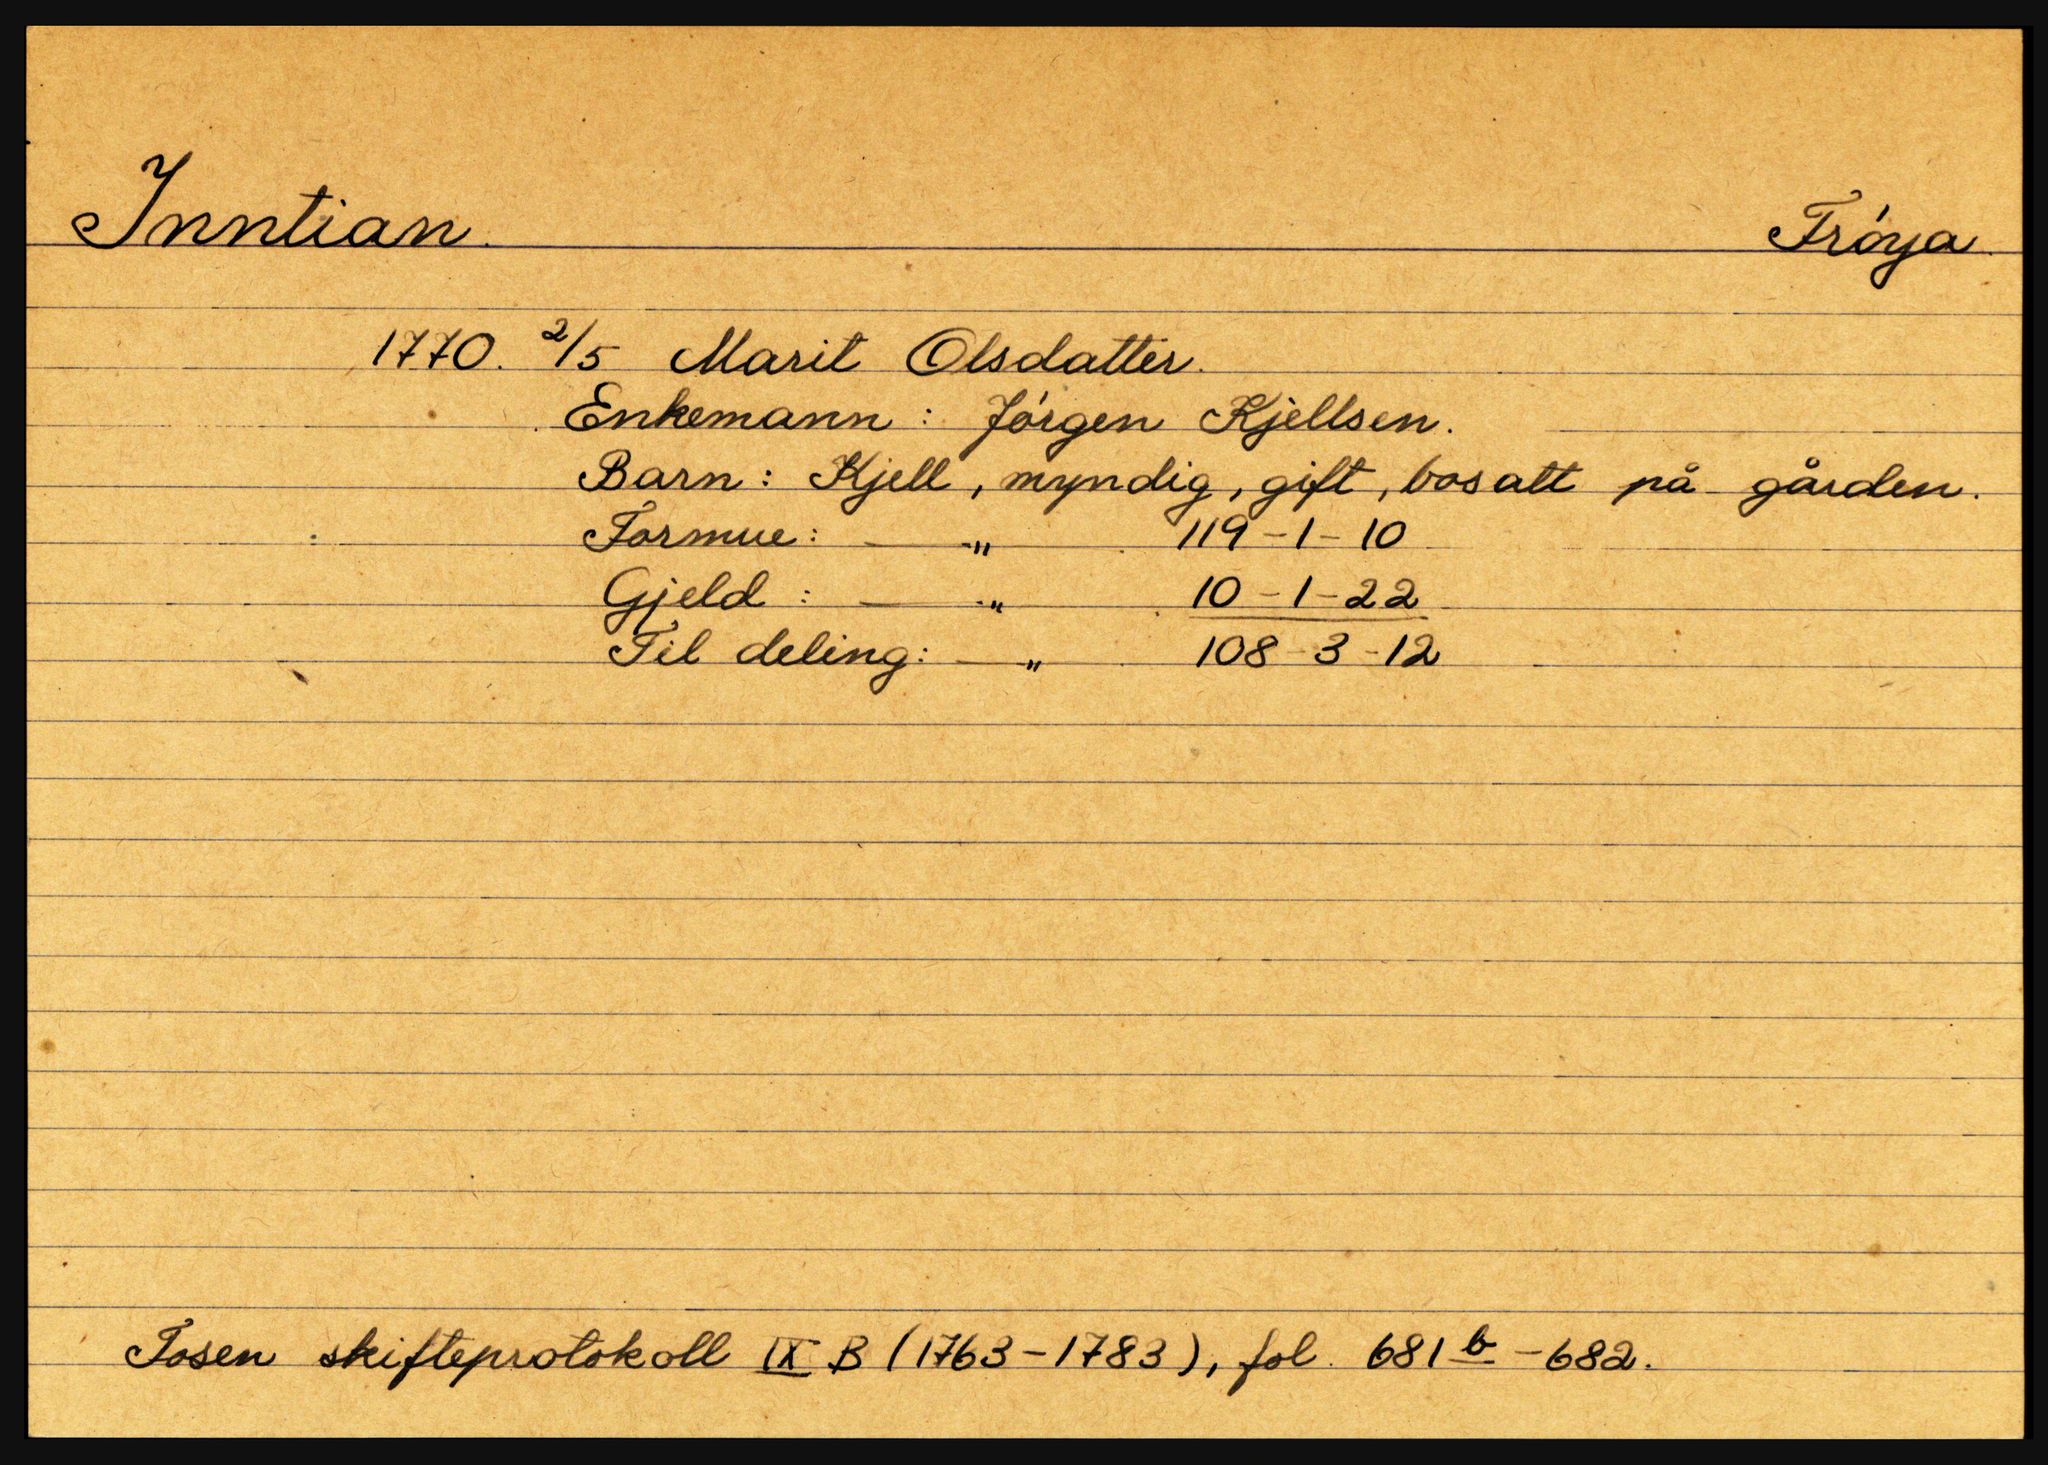 Inntian. Frøya.
1770. 2/5 Marit Olsdatter.
Enkemann: Jørgen Kjellsen.
Barn: Kjell, myndig, gift, bosatt på gården.
Formue: — " 119-1-10
Gjeld: — " 10-1-22
Til deling: — " 108-3-12
Fosen skifteprotokoll IX B (1763-1783), fol. 681b-682.